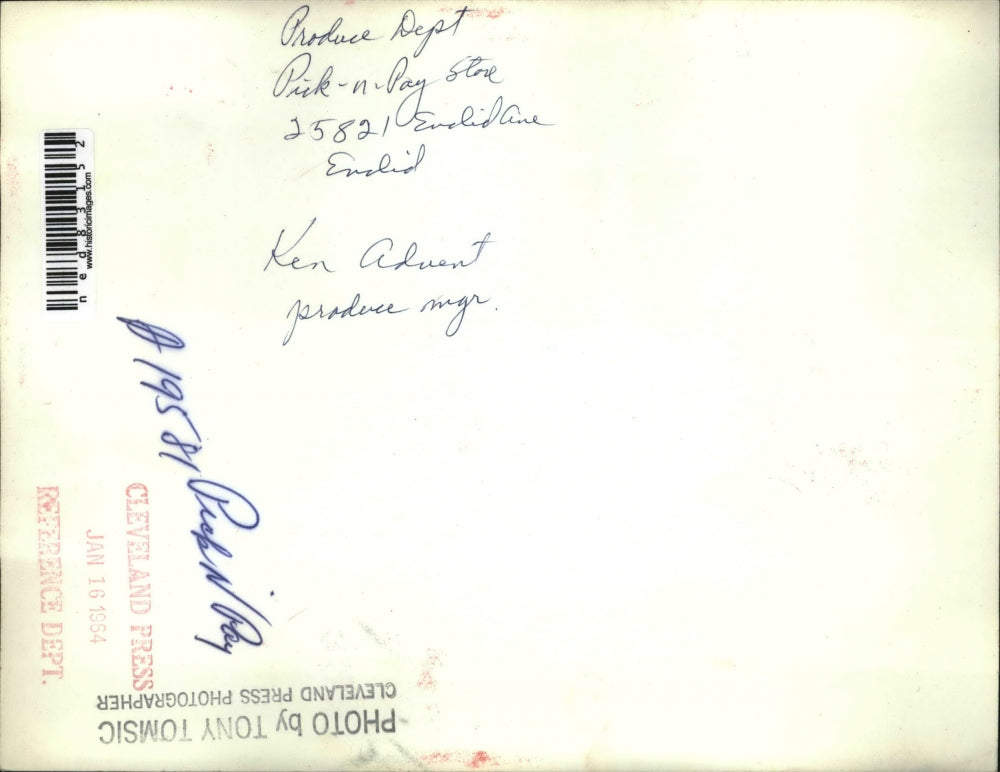 Produce Dept
Pick-n-Pay Store
25821 Euclid Ave
Euclid
Ken Advent
produce mgr.
ned83152
www.historicimages.com
A 19581 Pick N' Pay
CLEVELAND PRESS
JAN 16 1964
REFERENCE DEPT.
PHOTO by TONY TOMSIC
CLEVELAND PRESS PHOTOGRAPHER